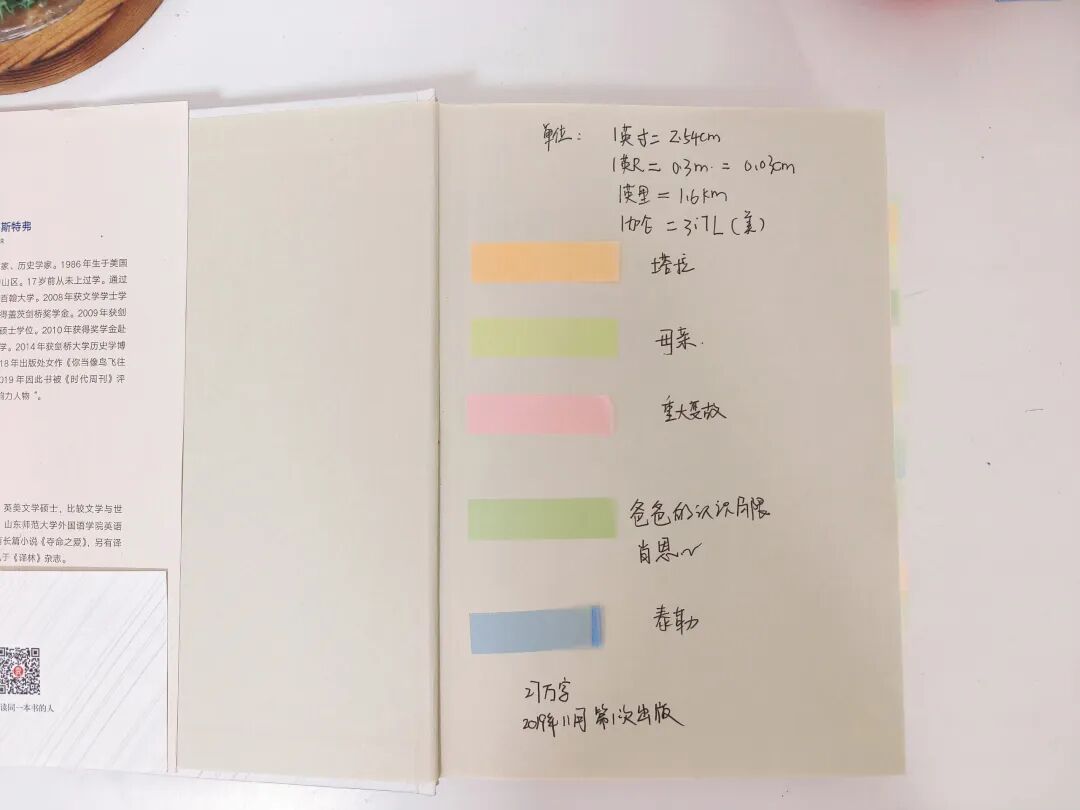 斯特弗
家、历史学家。1986年生于美国
山区。17岁前从未上过学。通过
百翰大学。2008年获文学学士学
得盖茨剑桥奖学金。2009年获剑
硕士学位。2010年获得奖学金赴
学。2014年获剑桥大学历史学博
18年出版处女作《你当像鸟飞往
019年因此书被《时代周刊》评
响力人物”。
英美文学硕士，比较文学与世
山东师范大学外国语学院英语
长篇小说《夺命之爱》，另有译
于《译林》杂志。
读同一本书的人
单位： 1英寸=2.54cm
1英尺=0.3m.=0.03cm
1英里=1.6km
1加仑=3.7L(美)
塔拉
母亲.
重大变故
爸爸的认识局限
肖恩~
泰勒
27万字
2019年11月第1次出版